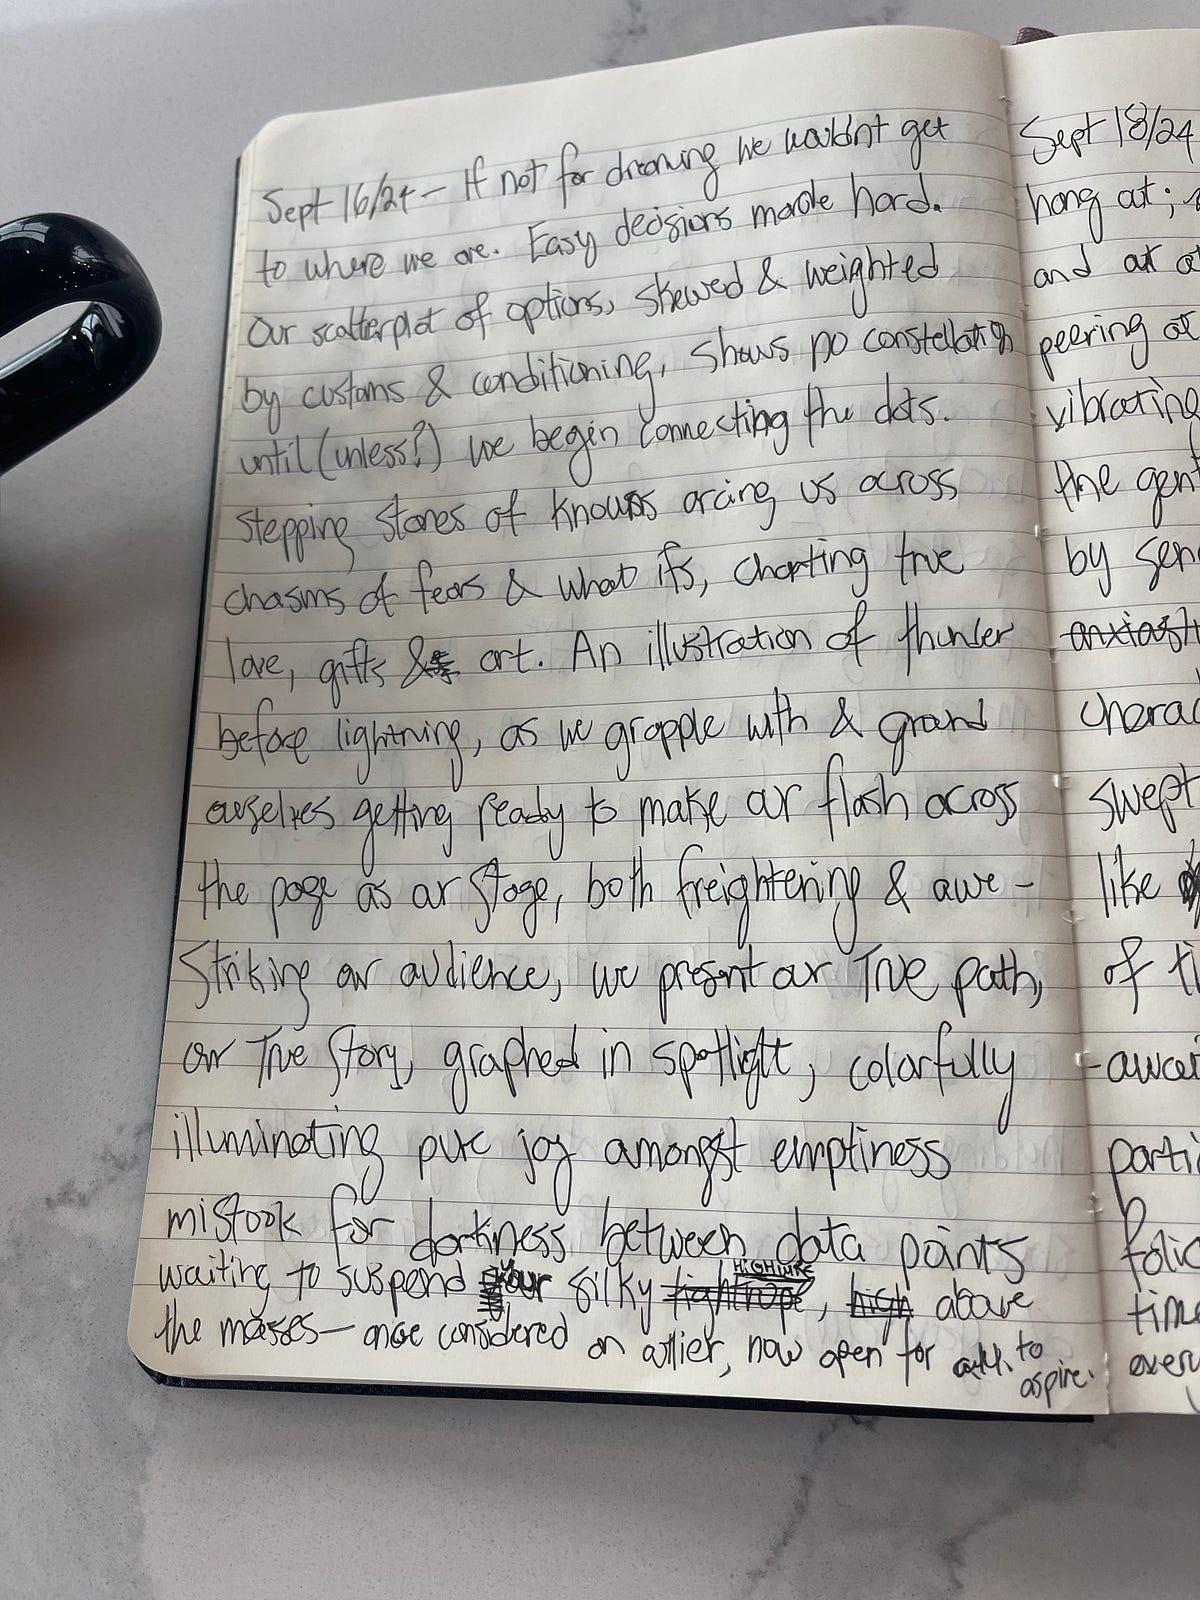 Sept 16/24 — If not for dreaming we wouldn't get
to where we are. Easy decisions made hard.
Our scatterplot of options, skewed & weighted
by customs & conditioning, shows no constellation
until (unless?) we begin connecting the dots.
stepping stones of knowns arcing us across
chasms of fears & what ifs, charting true
love, gifts & art. An illustration of thunder
before lightning, as we grapple with & ground
ourselves getting ready to make our flash across
the page as our stage, both freightening & awe-
striking our audience, we present our True path,
our True Story, graphed in spotlight, colorfully
illuminating pure joy amongst emptiness
mistook for darkness between data points
waiting to suspend our silky tightrope HIGHWIRE, high above
the masses — once considered an outlier, now open for all to
aspire.
Sept 18/24
hang out;
and at
peering at
vibrating
the
by
charac
swept
like
of
-await
parti
folic
time